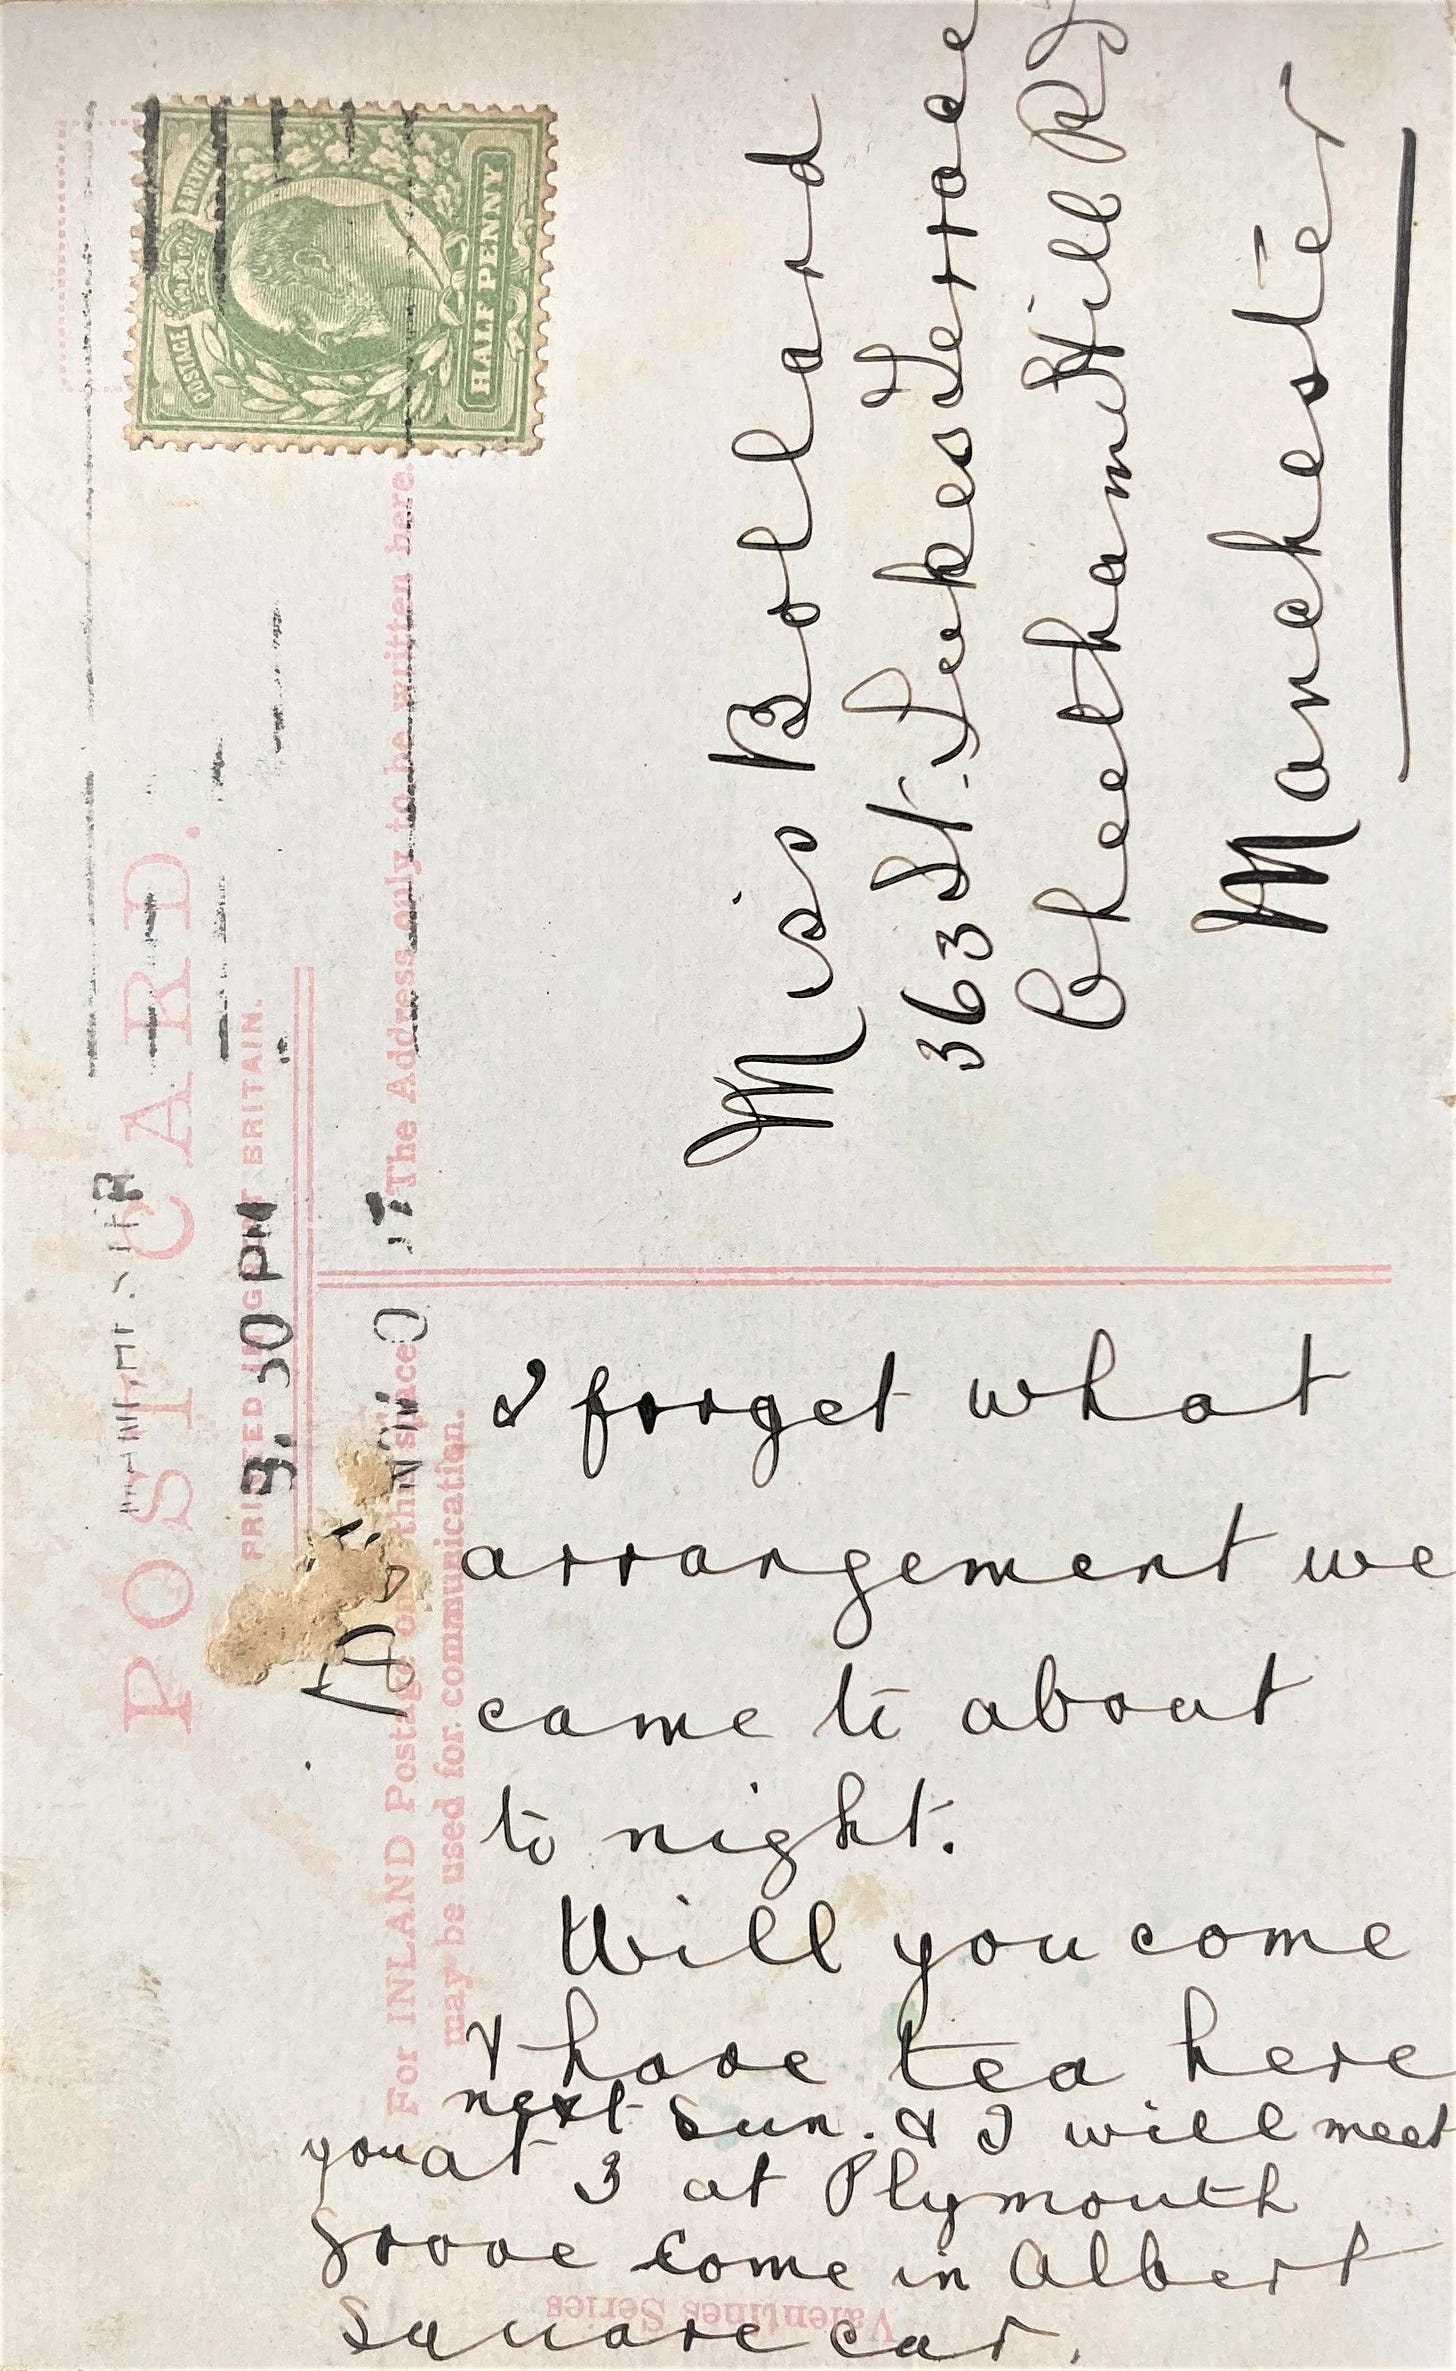 POST CARD.
PRINTED IN GREAT BRITAIN.
For INLAND Postage only this space
may be used for communication.
The Address only to be written here.
POSTAGE
HALF PENNY
3. 30 PM
Miss Bolland
363 St. Lukes Terrace
Cheetham Hill Rd
Manchester
I forget what
arrangement we
came to about
to night.
Will you come
& have tea here
next Sun. & I will meet
you at 3 at Plymouth
Grove Come in Albert
Square car.
Valentines Series